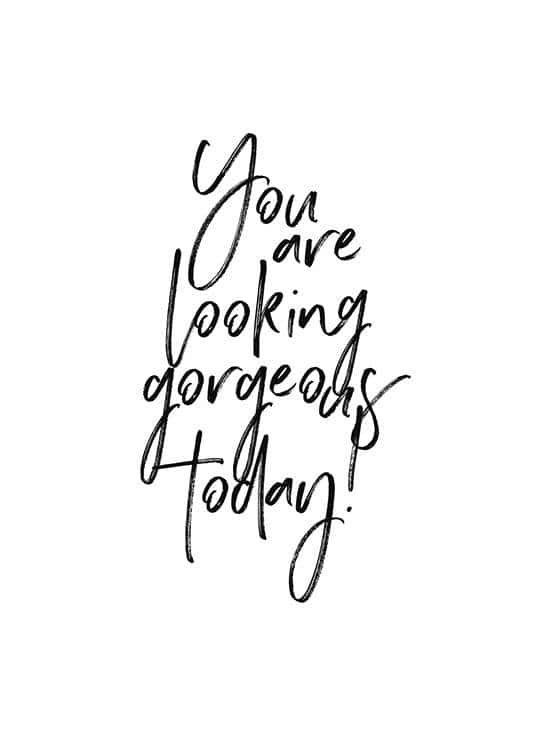 You
are
looking
gorgeous
today!